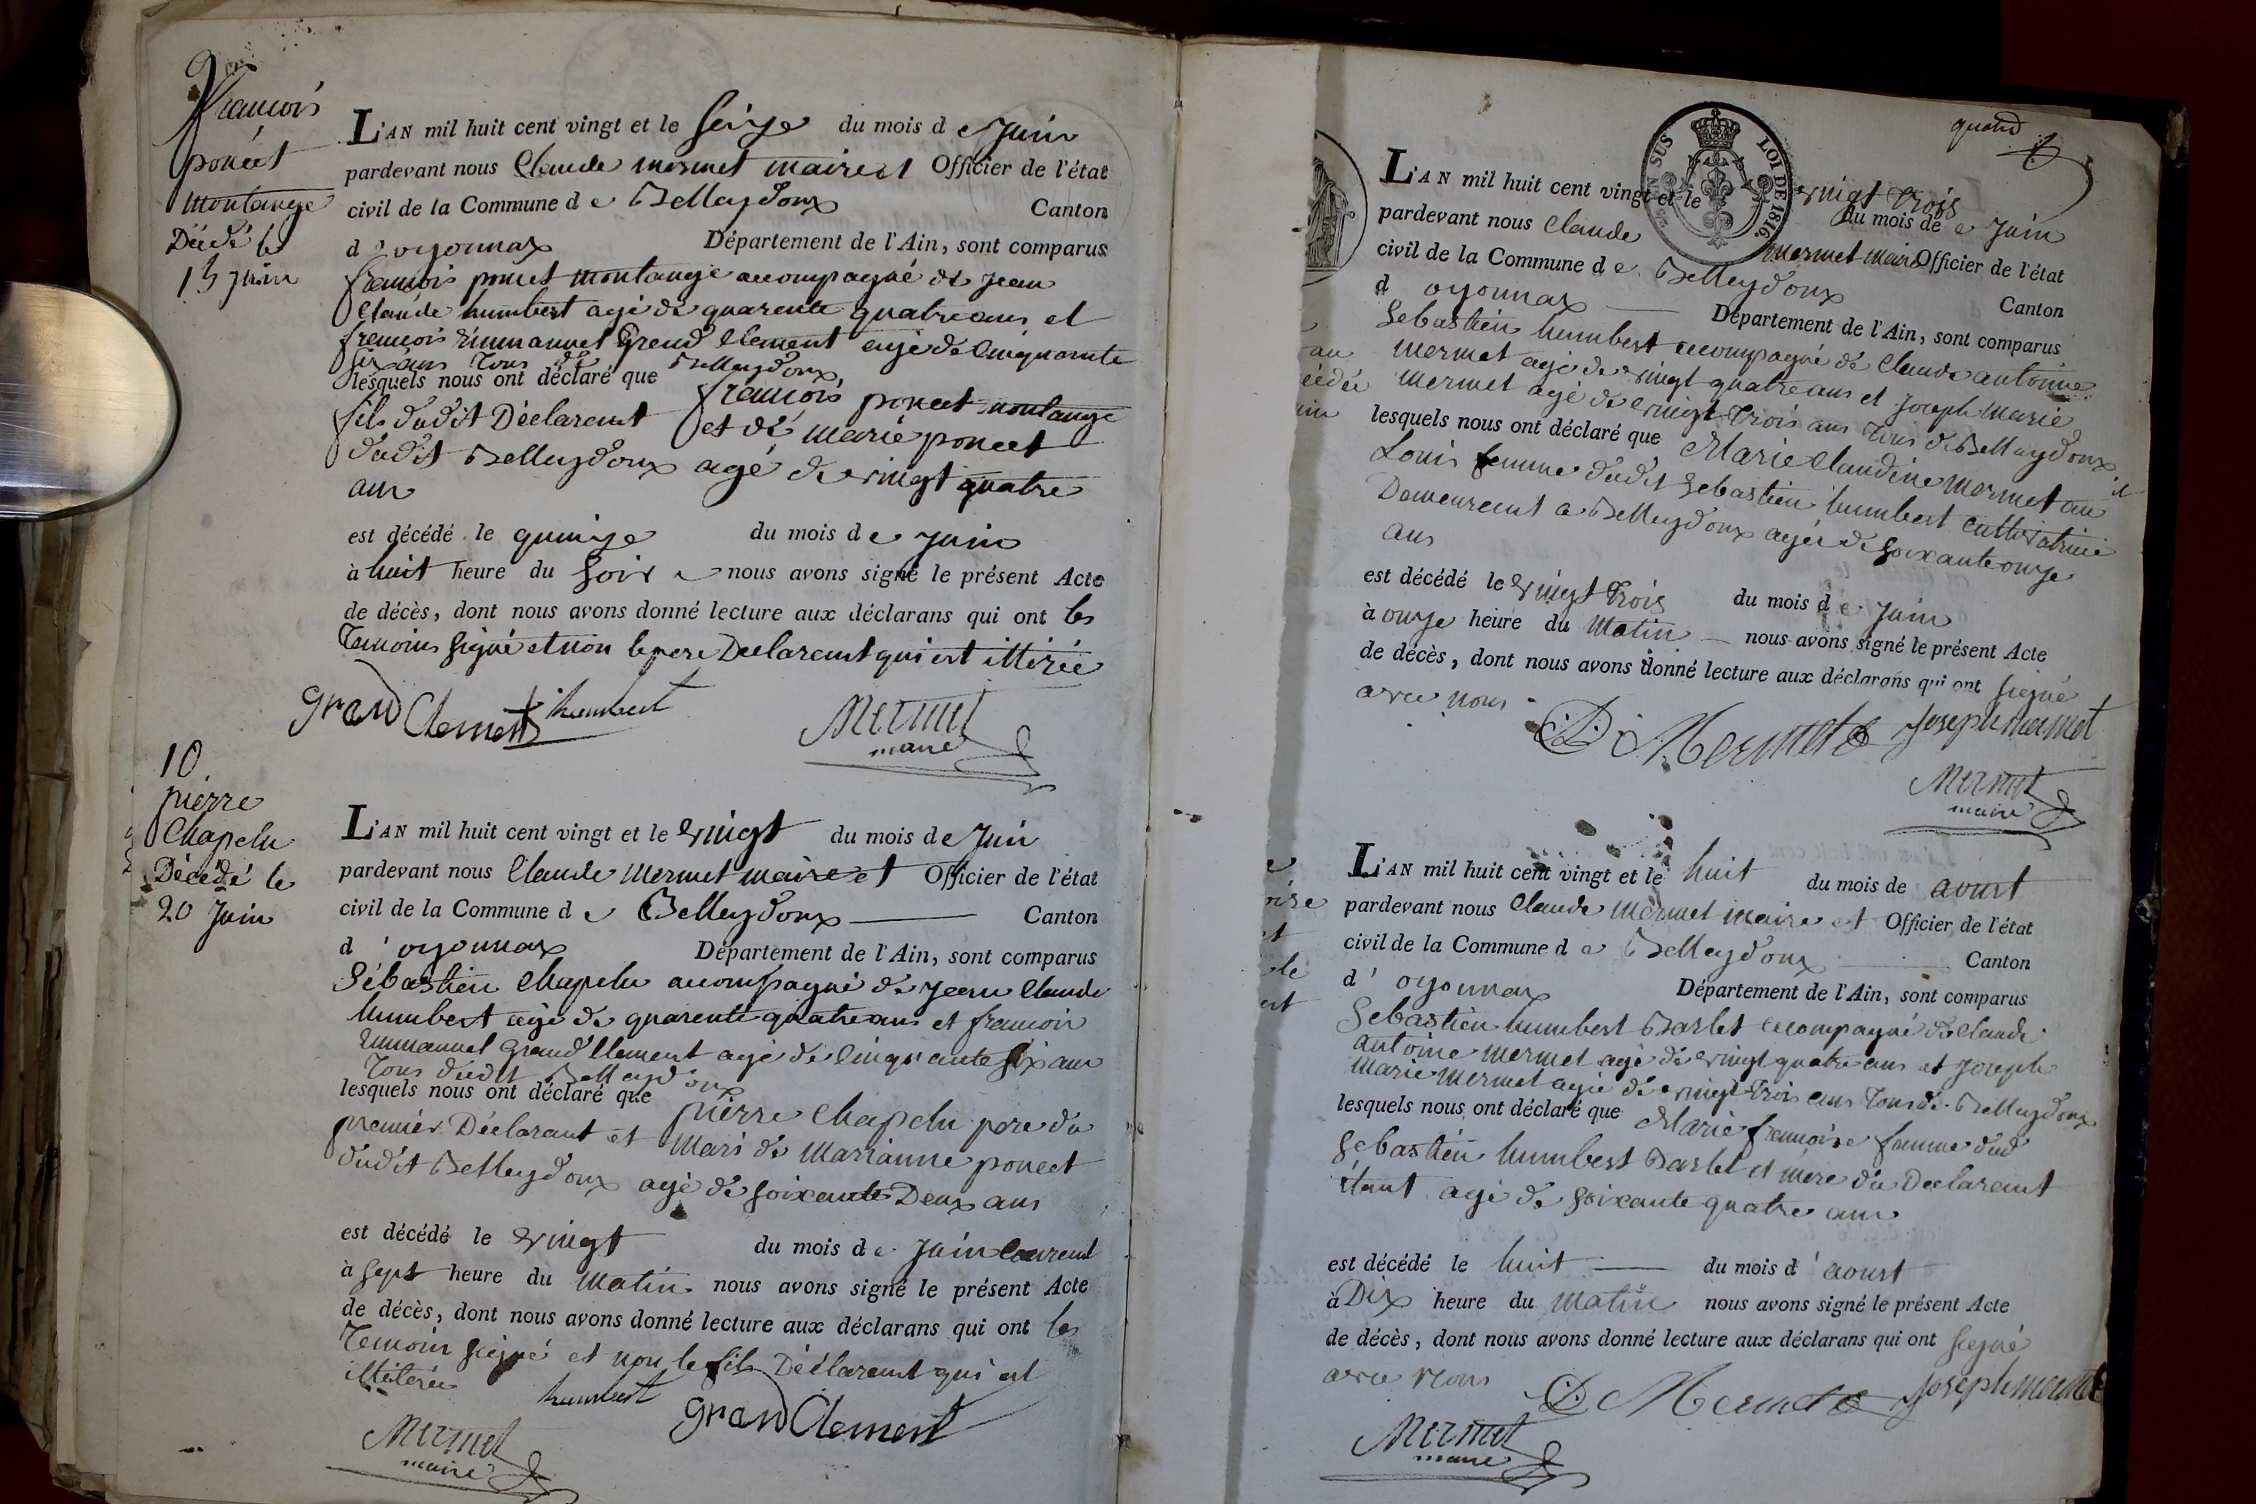 9
françois
poncet
montange
Décédé le
15 juin
L'AN mil huit cent vingt et le seize du mois de Juin
pardevant nous Claude mermet maire et Officier de l'état
civil de la Commune de Belleydoux Canton
d'oyonnax Département de l'Ain, sont comparus
françois poncet montange accompagné de jean
Claude humbert agé de quarente quatre ans et
françois Emmanuel Grand Clement agé de Cinquante
six ans Tous de Belleydoux
lesquels nous ont déclaré que françois poncet montange
fils dudit Déclarent et de marie poncet
dudit Belleydoux agé de vingt quatre
ans
est décédé le quinze du mois de juin
à huit heure du soir nous avons signé le présent Acte
de décès, dont nous avons donné lecture aux déclarans qui ont les
Temoins signé et non le pere Declarent qui est illitérée
Grand Clement humbert Mermet
maire
10
pierre
Chapelu
Décédé le
20 Juin
L'AN mil huit cent vingt et le vingt du mois de Juin
pardevant nous Claude Mermet maire et Officier de l'état
civil de la Commune de Belleydoux Canton
d'oyonnax Département de l'Ain, sont comparus
Sébastien Chapelu accompagné de jean Claude
humbert agé de quarente quatre ans et francois
Emmanuel Grand Clement agé de Cinquante six ans
Tous dudit Belleydoux
lesquels nous ont déclaré que pierre Chapelu pere du
premier Déclarant et Mari de Marianne poncet
dudit Belleydoux agé de soixante Deux ans
est décédé le vingt du mois de Juin Courent
à sept heure du matin nous avons signé le présent Acte
de décès, dont nous avons donné lecture aux déclarans qui ont les
Temoin signé et non le fils Déclarent qui est
illitérée humbert Grand Clement
Mermet
maire
quand
SUS
LOI DE 1816
L'AN mil huit cent vingt et le vingt trois du mois de Juin
pardevant nous Claude mermet maire Officier de l'état
civil de la Commune de Belleydoux Canton
d oyonnax Département de l'Ain, sont comparus
Sebastien humbert accompagné de Claude antoine
mermet agé de vingt quatre ans et joseph marie
mermet agé de vingt Trois ans Tous de Belleydoux
lesquels nous ont déclaré que Marie Claudine mermet au
Louis femme dudit Sebastien humbert Cultivatrice
Demeurent a Belleydoux agée de soixante onze
ans
est décédé le vingt Trois du mois de Juin
à onze heure du Matin nous avons signé le présent Acte
de décès, dont nous avons donné lecture aux déclarans qui ont signé
avec nous
Mermet Joseph mermet
Mermet
maire
L'AN mil huit cent vingt et le huit du mois de aoust
pardevant nous Claude mermet maire et Officier de l'état
civil de la Commune de Belleydoux Canton
d'oyonnax Département de l'Ain, sont comparus
Sebastien humbert Barlet accompagné de Claude
antoine mermet agé de vingt quatre ans et joseph
Marie Mermet agé de vingt Trois ans Tous de Belleydoux
lesquels nous ont déclaré que Marie francoise femme dud
Sebastien humbert Barlet et mere du Declarent
étant agé de soixante quatre ans
est décédé le huit du mois d'aoust
à Dix heure du matin nous avons signé le présent Acte
de décès, dont nous avons donné lecture aux déclarans qui ont signé
avec Nous
Mermet Joseph mermet
Mermet
maire